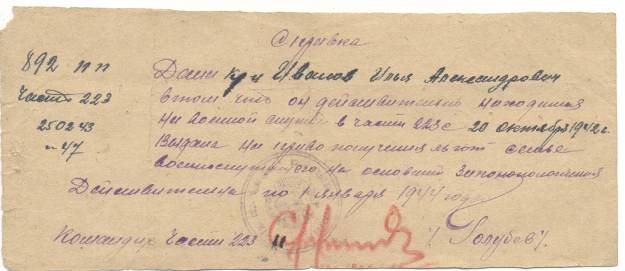 Справка
892 пп
Часть 223
250243
№ 47
Дана кр-ц Иванов Илья Александрович
в том что он действительно находится
на военной службе в части 223 с 20 октября 1942 г.
Выдана на право получения льгот семье
военнослужащего на основании законоположения
Действительна по 1 января 1944 года
Командир части 223 /Голубев/.